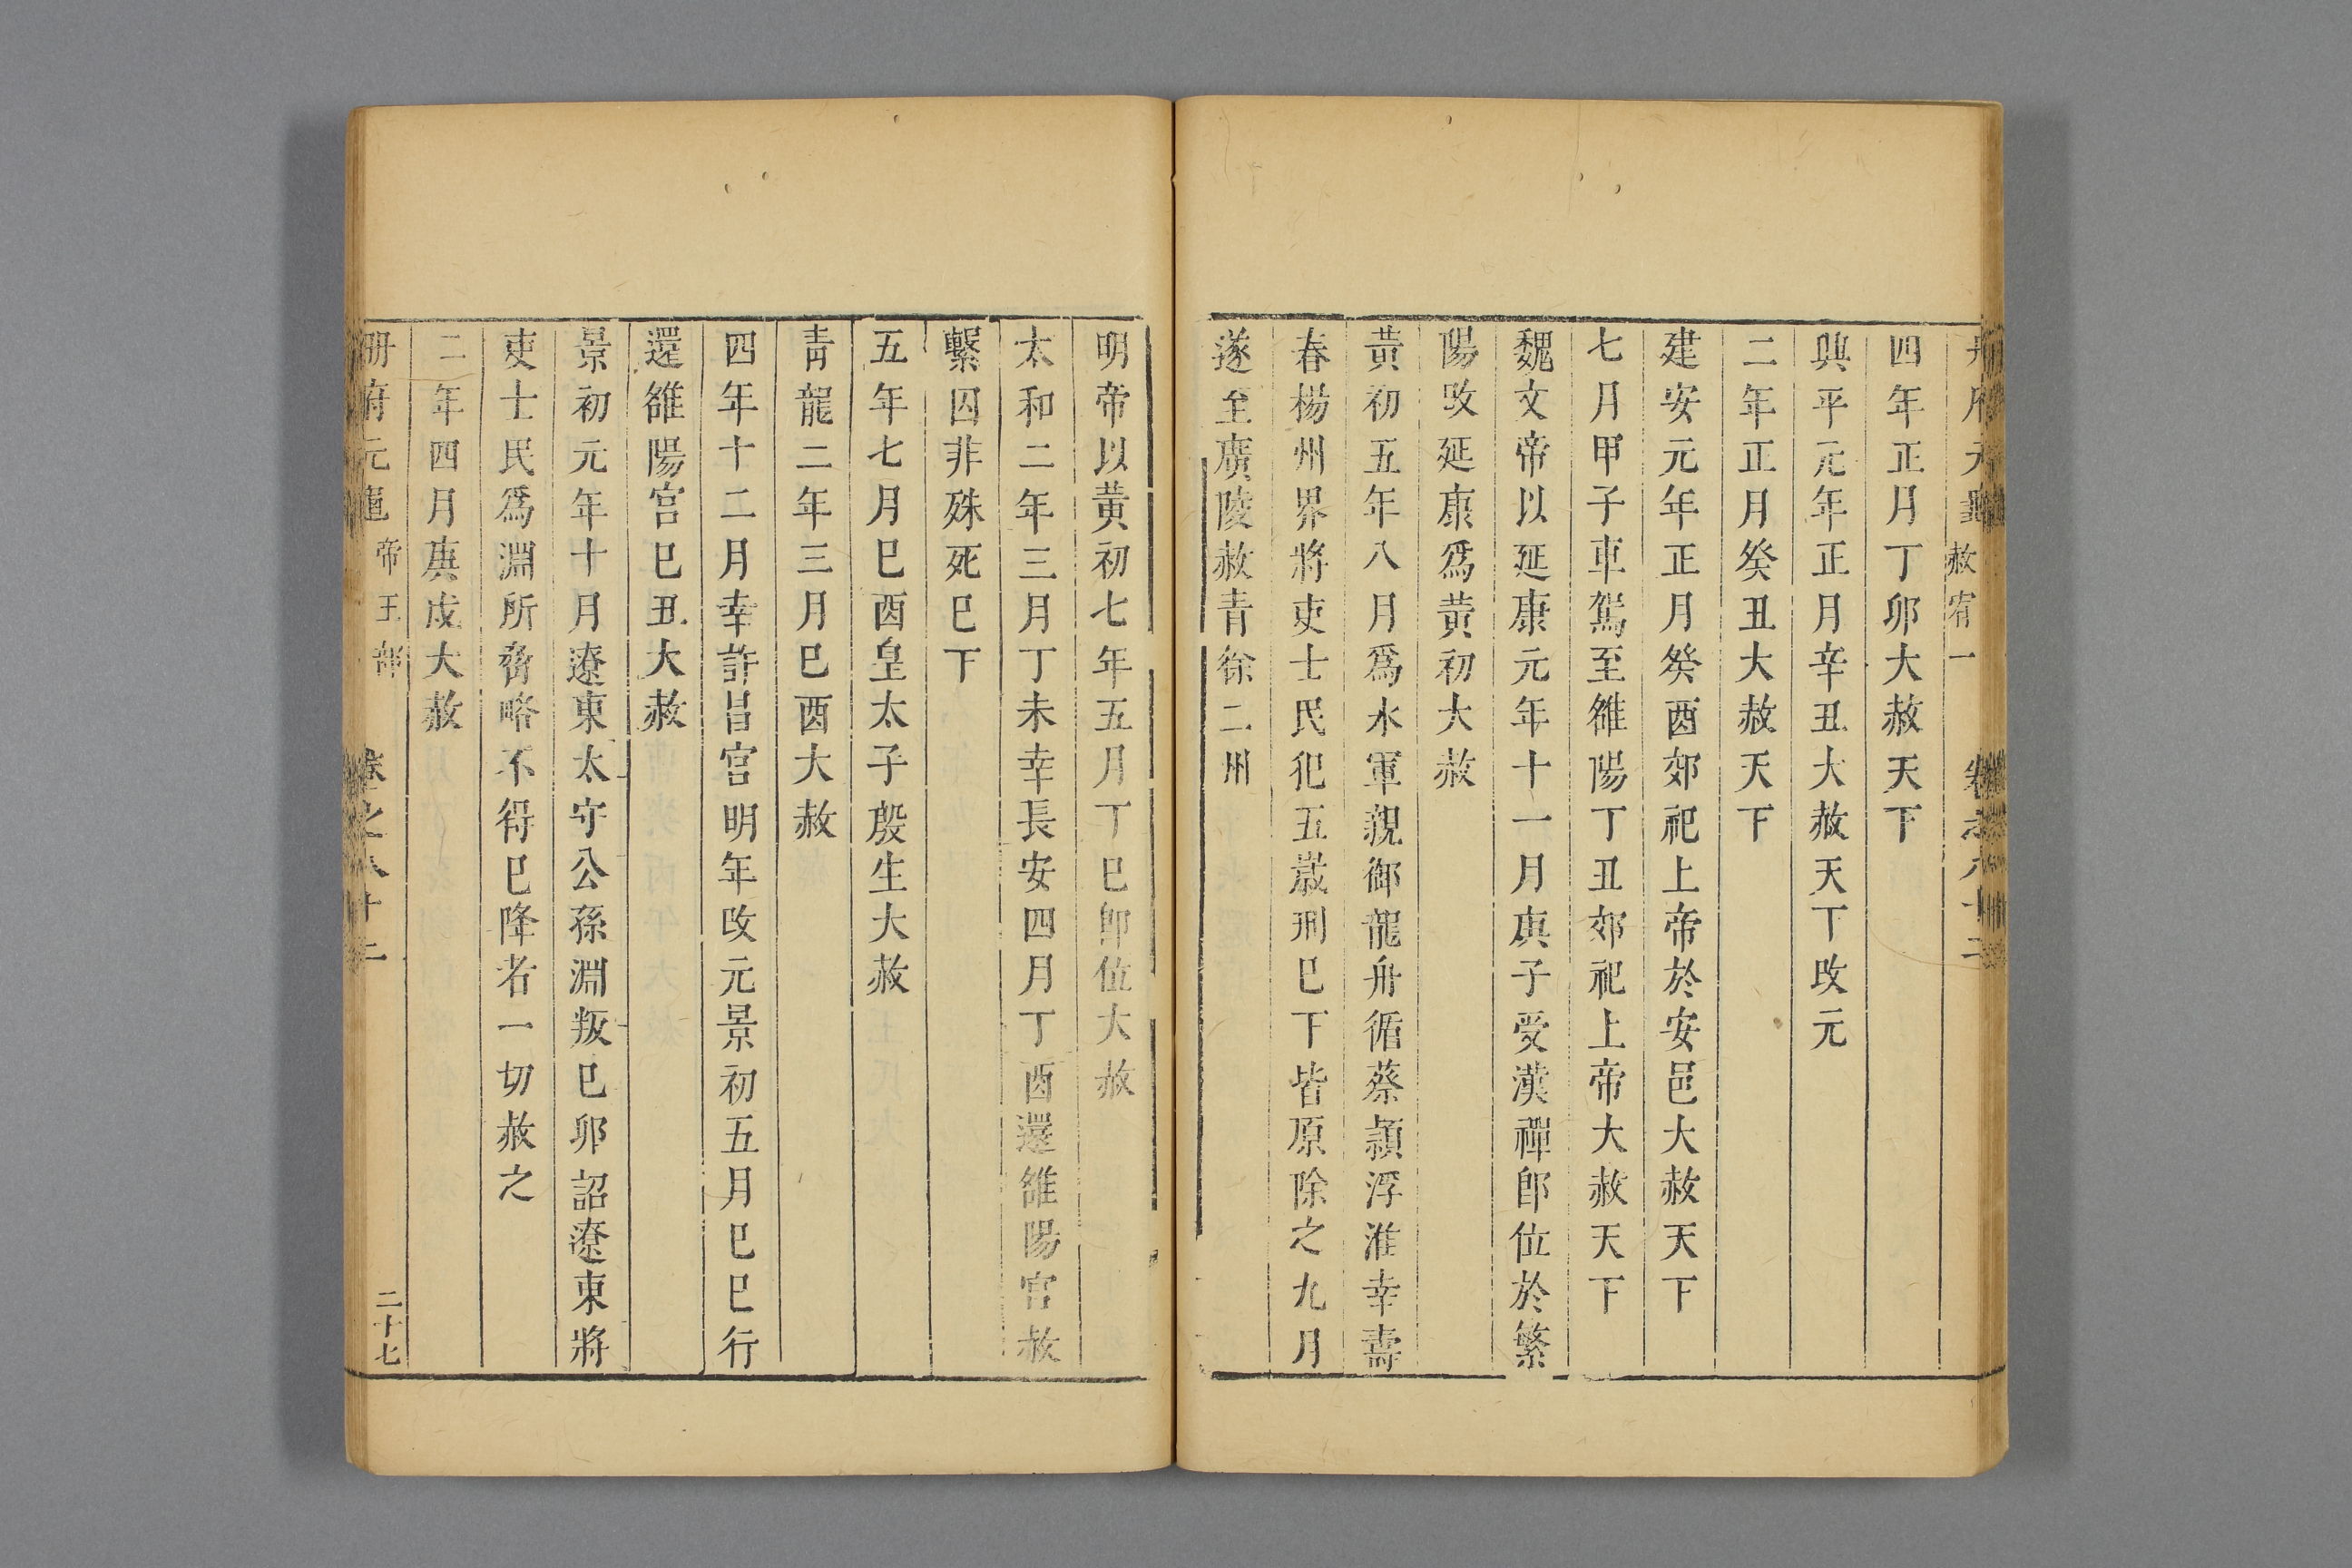 冊府元龜 赦宥一 卷之八十二
四年正月丁卯大赦天下
興平元年正月辛丑大赦天丁改元
二年正月癸丑大赦天下
建安元年正月癸酉郊祀上帝於安邑大赦天下
七月甲子車駕至雒陽丁丑郊祀上帝大赦天下
魏文帝以延康元年十一月庚子受漢禪卽位於繁
陽改延康爲黃初大赦
黃初五年八月爲水軍親御龍舟循蔡潁浮淮幸壽
春楊州界將吏士民犯五歲刑巳下皆原除之九月
遂至廣陵赦青徐二州
明帝以黃初七年五月丁巳卽位大赦
太和二年三月丁未幸長安四月丁酉還雒陽宮赦
繫囚非殊死巳下
五年七月巳酉皇太子殷生大赦
青龍二年三月巳酉大赦
四年十二月幸許昌宮明年改元景初五月巳巳行
還雒陽宮巳丑大赦
景初元年十月遼東太守公孫淵叛巳卯詔遼東將
吏士民爲淵所脅略不得巳降者一切赦之
二年四月庚戌大赦
冊府元龜 帝王部 卷之八十二 二十七